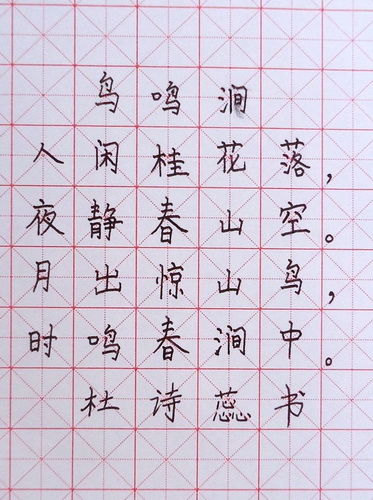 鸟鸣涧
人闲桂花落，
夜静春山空。
月出惊山鸟，
时鸣春涧中。
杜诗蕊书